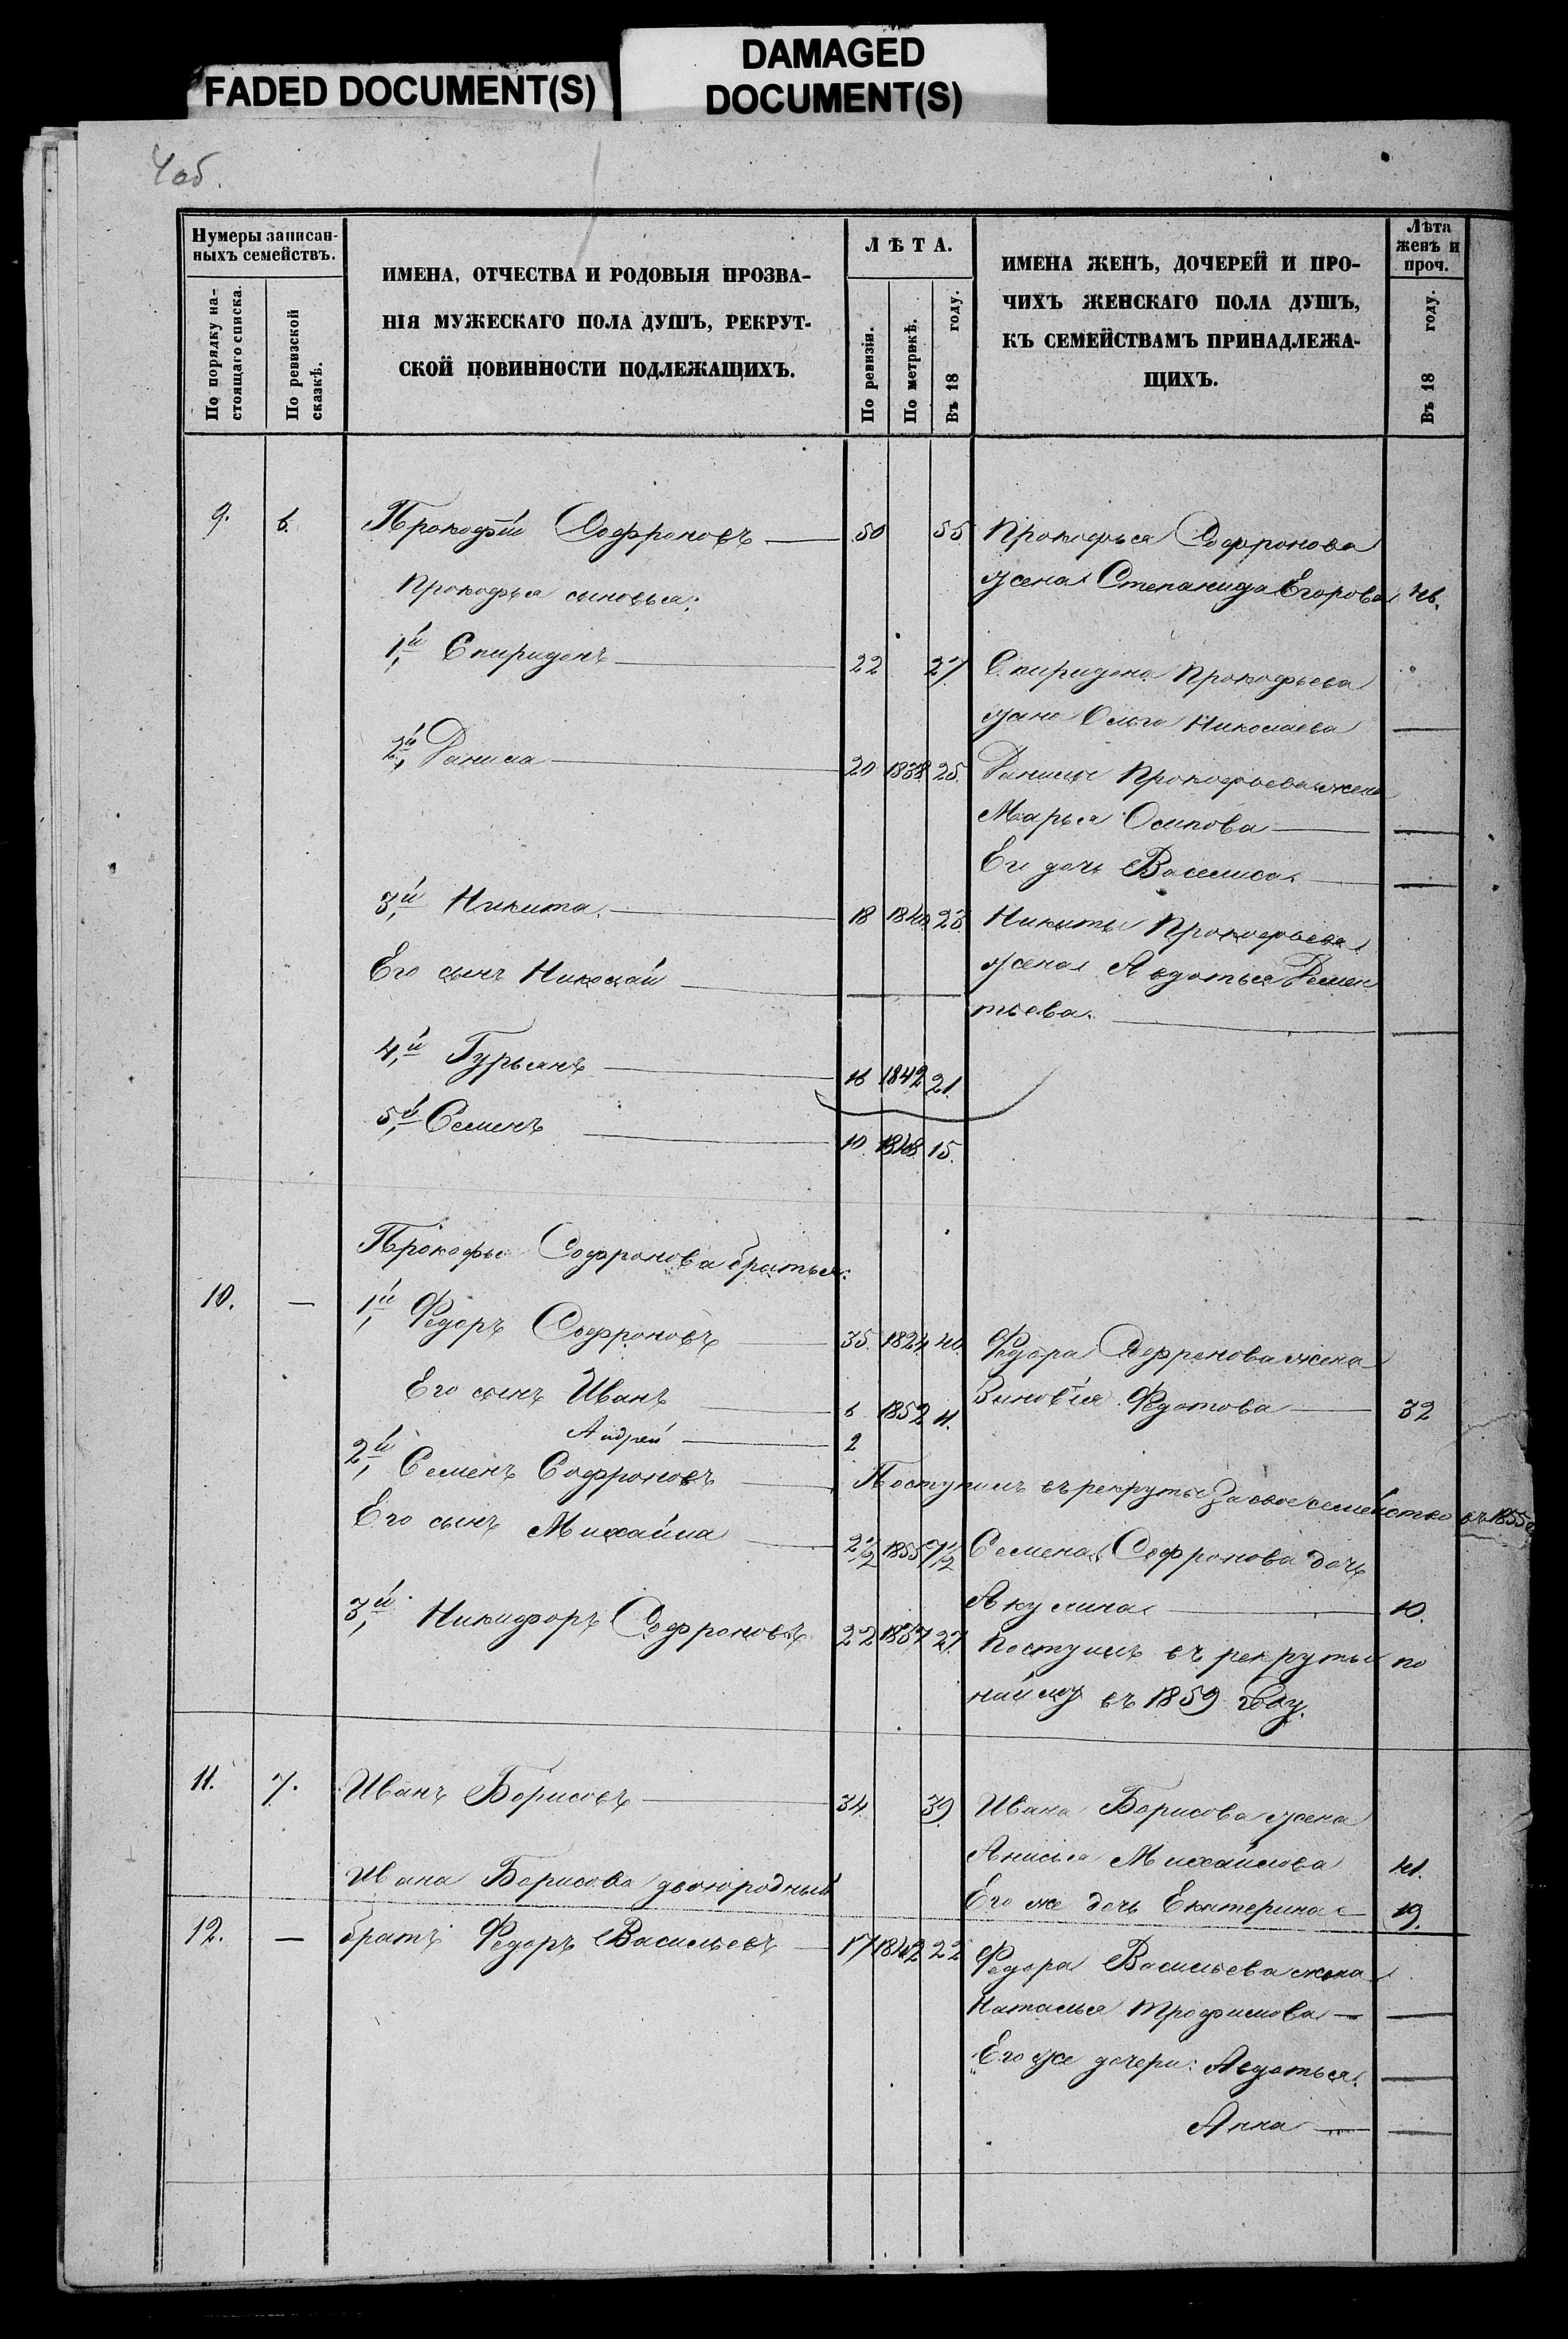 FADED DOCUMENT(S)
DAMAGED
DOCUMENT(S)
4 об.
Нумеры записан-
ныхъ семействъ.
По порядку на-
стоящаго списка.
По ревизской
сказкѣ.
ИМЕНА, ОТЧЕСТВА И РОДОВЫЯ ПРОЗВА-
НІЯ МУЖЕСКАГО ПОЛА ДУШЪ, РЕКРУТ-
СКОЙ ПОВИННОСТИ ПОДЛЕЖАЩИХЪ.
ЛѢТА.
По ревизіи.
По метрикѣ.
Въ 18 году.
ИМЕНА ЖЕНЪ, ДОЧЕРЕЙ И ПРО-
ЧИХЪ ЖЕНСКАГО ПОЛА ДУШЪ,
КЪ СЕМЕЙСТВАМЪ ПРИНАДЛЕЖА-
ЩИХЪ.
Лѣта
женъ и
проч.
Въ 18 году.
9. 6. Прокофій Софроновъ 50 55 Прокофья Софронова
Прокофья сыновья: жена Степанида Егорова 46.
1й Спиридонъ 22 27 Спиридона Прокофьева
жена Ольга Николаева —
2й Данила 20 1838 25. Данилы Прокофьева жена
Марья Осипова —
Его дочь Василиса —
3й Никита 18 1840 23. Никиты Прокофьева
Его сынъ Николай — жена Авдотья Демен
тьева. —
4й Гурьянъ 16 1842 21.
5й Семенъ 10 1848 15.
Прокофья Софронова братья:
10. — 1й Федоръ Софроновъ 35. 1824 40. Федора Софронова жена
Его сынъ Иванъ 6 1852 11. Зиновія Федотова 32
Андрей 2
2й Семенъ Софроновъ Поступилъ въ рекруты за свое семейство въ 1855
Его сынъ Михайла 2 1/2 1855 7 1/2 Семена Софронова дочь
Акулина 10.
3й Никифоръ Софроновъ 22 1837 27. Поступилъ въ рекруты по
найму въ 1859 году.
11. 7. Иванъ Борисовъ 34. 39. Ивана Борисова жена
Анисья Михайлова 41.
Ивана Борисова двоюродный Его же дочь Екатерина 19.
12. — братъ Федоръ Васильевъ 17 1842 22 Федора Васильева жена
Наталья Трофимова —
Его же дочери: Авдотья —
Анна —